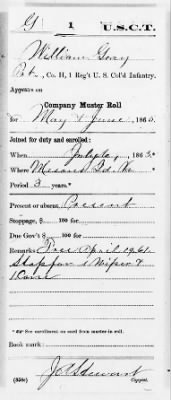 G | 1 | U.S.C.T.
William Gray
Pvt., Co. H, 1 Reg't U. S. Col'd Infantry.
Appears on
Company Muster Roll
for May & June, 1865.
Joined for duty and enrolled:
When July 1, 1863.*
Where Masons Id. Va
Period 3 years.*
Present or absent Present
Stoppage, $ 100 for
Due Gov't $ 100 for
Remarks: Free April 19 61.
Stop for 1 Wiper &
1 Cone
*See enrollment on card from muster-in roll.
Book mark:
J A Stewart
(358c) Copyist.